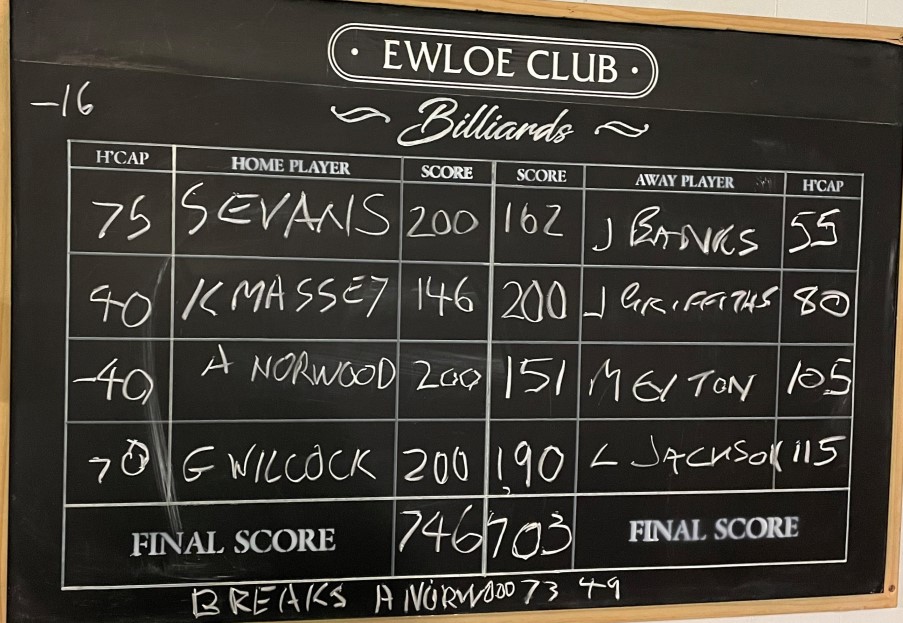 EWLOE CLUB
-16
Billiards
H'CAP HOME PLAYER SCORE SCORE AWAY PLAYER H'CAP
75 S EVANS 200 162 J BANKS 55
40 K MASSEY 146 200 J GRIFFITHS 80
-40 A NORWOOD 200 151 M 105
70 G WILCOCK 200 190 L JACKSON 115
FINAL SCORE 746 703 FINAL SCORE
BREAKS A NORWOOD 73 49